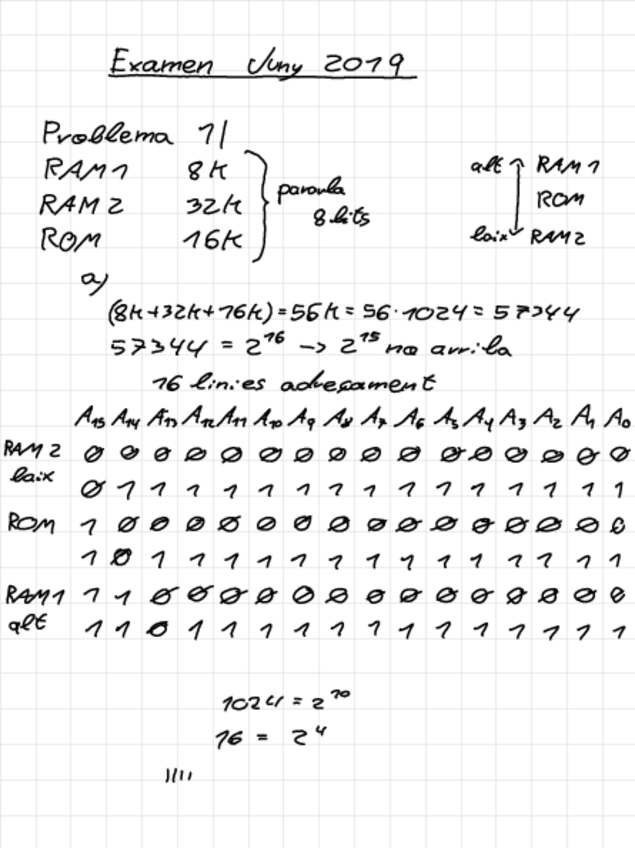 Examen Juny 2019
Problema 1|
RAM1 8K
RAM2 32K
ROM 16K
paraula
8 bits
alt RAM1
ROM
baix RAM2
a)
(8K+32K+16K)=56K=56·1024=57344
57344 = 2^16 -> 2^15 no arriba
16 linies adreçament
A15 A14 A13 A12 A11 A10 A9 A8 A7 A6 A5 A4 A3 A2 A1 A0
RAM2 0 0 0 0 0 0 0 0 0 0 0 0 0 0 0 0
baix 0 1 1 1 1 1 1 1 1 1 1 1 1 1 1 1
ROM 1 0 0 0 0 0 0 0 0 0 0 0 0 0 0 0
1 0 1 1 1 1 1 1 1 1 1 1 1 1 1 1
RAM1 1 1 0 0 0 0 0 0 0 0 0 0 0 0 0 0
alt 1 1 0 1 1 1 1 1 1 1 1 1 1 1 1 1
1024 = 2^10
16 = 2^4